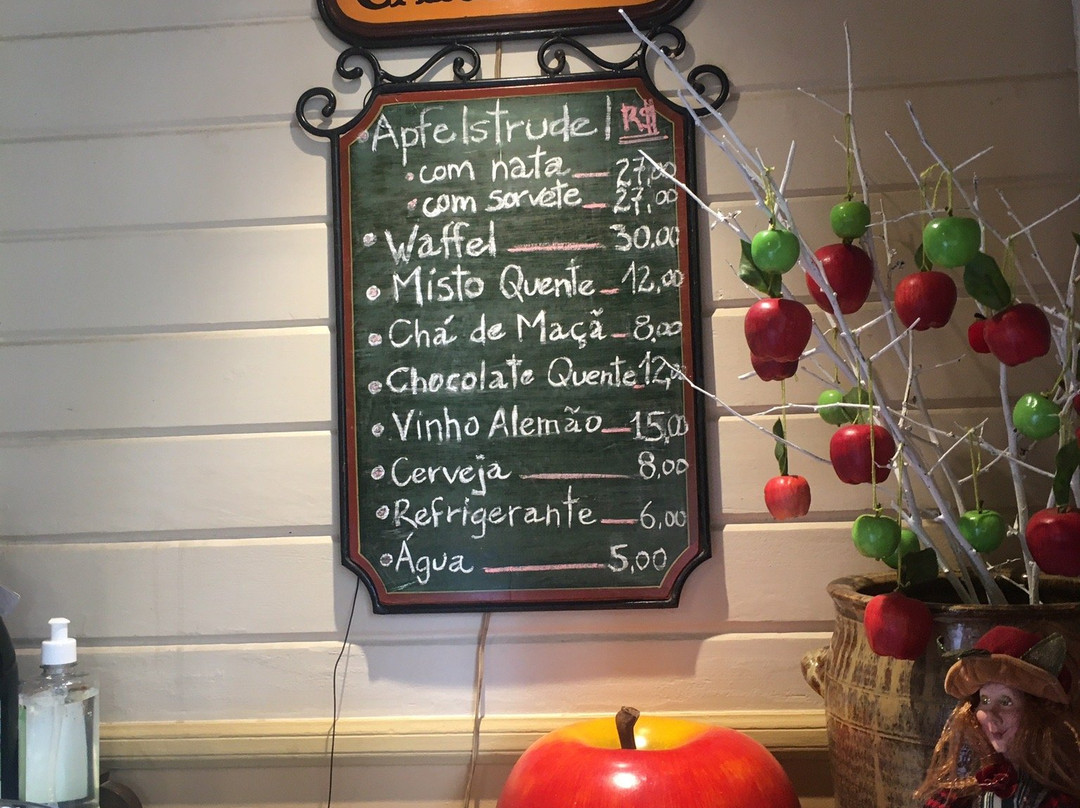 Apfelstrudel R$
• com nata __ 27,00
• com sorvete _ 27,00
• Waffel ____ 30,00
• Misto Quente _ 12,00
• Chá de Maçã _ 8,00
• Chocolate Quente _ 12,00
• Vinho Alemão _ 15,00
• Cerveja ____ 8,00
• Refrigerante __ 6,00
• Água ____ 5,00